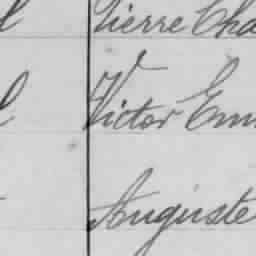 Pierre Cha
Victor Em
Auguste